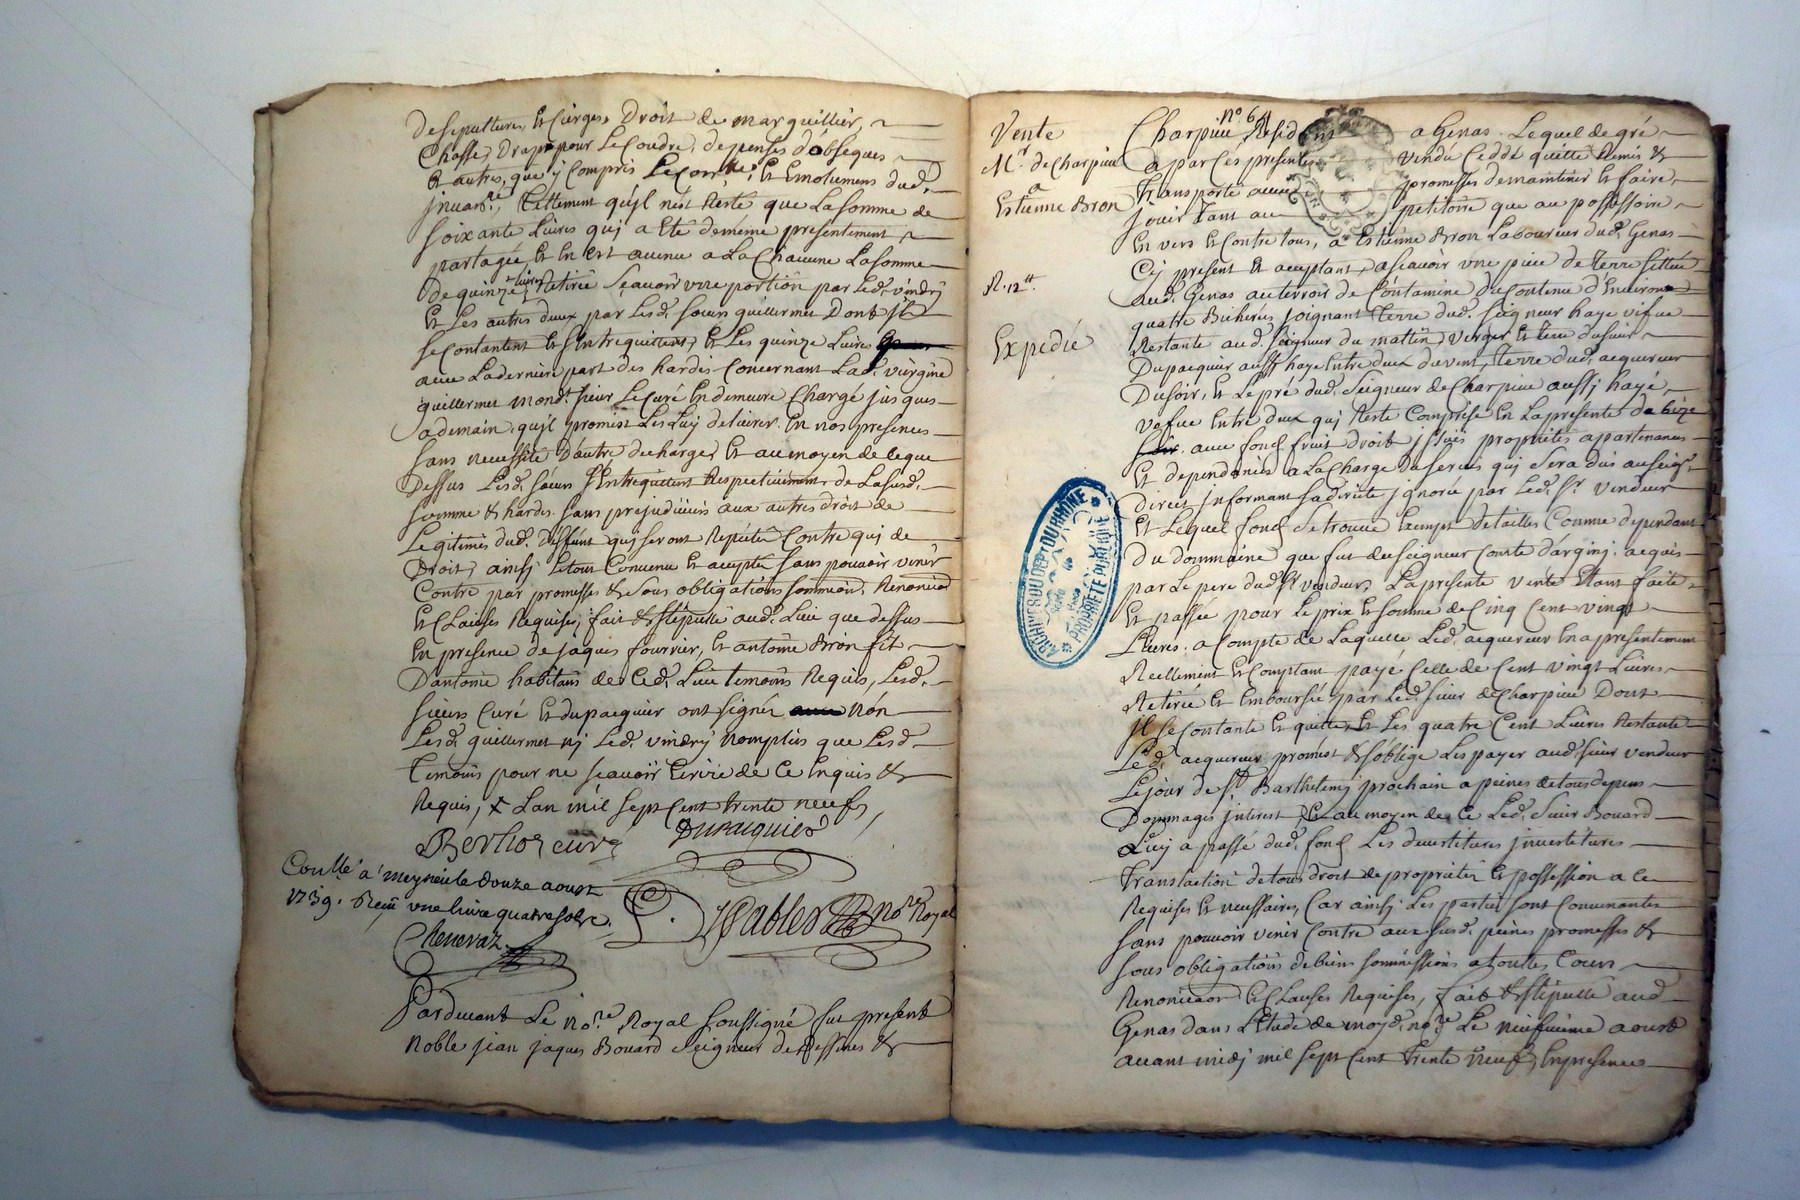 de sepultures, et Cierges, Droit de marguillier,
Chasse, Drap pour le Coudre, depenses d'obseques
et autres, que y compris le Contrôle, et Emolumens dud.
jnuanre, tellement qu'jl n'est Resté que La somme de
soixante Liures quj a Eté de même presentement
partagée et En est auenu a La Chacune La somme
de quinze Liures retirée Sçauoir vne portion par Led. vindrÿ
Et Les autres deux par Lesd. soeurs guillermet Dont jls
se Contantent et S'entrequittent, et Les quinze Liures
auec La derniere part des hardes Concernant Lad. viergine
guillermet mond. sieur Le Curé En demeure Chargé jusques
a demain, qu'jl promet Les Luÿ deliurer En nos presences
sans necessité D'autre decharge, Et au moyen de ce que
Dessus Lesd. soeurs S'Entrequittent Respectiuement de La susd.
somme et hardes sans prejudicier aux autres droit de
Legitimes dud. Deffunt quj seront Repetés Contre quj de
Droit, ainsj Le tout Conuenu et accepté sans pouuoir venir
Contre par promesses et sous obligations soumissions, Renonciaon
Et Clauses Requises, fait et stipullé aud. Lieu que dessus
En presence de jaques fourrier, et antoine Bron fils
D'antoine habitans de Ced. Lieu temoins Requis, Lesd.
sieurs Curé et dupacquier ont signés non
Lesd. guillermet nj Led. vindrÿ nomplus que Lesd.
temoins pour ne sçauoir Ecrire de Ce Enquis et
Requis, L'an mil sept Cent trente neuf,
Berlioz curé Dupacquier
Coullé a meyzieu le Douze aoust
1739. Reçu vne liure quatre sols.
Chenevaz
Nore Royal
Pardeuant Le Nore Royal soussigné fut present
Noble jean jaques Bouard Seigneur de Dessines et
Vente
Mr. de Charpieu
a
Estienne Bron
R. 12 tt
Expedié
n° 64
Charpieu, Resident a Genas Lequel de gré
a par Ces presentes vendu Ceddé quitté Remis et
transporté auec promesses de maintenir et faire
jouir tant au petitoire que au possessoire
En vers et Contre tous, a Estienne Bron Laboureur dud. Genas
Cÿ present et acceptant, a sçauoir vne piece de terre sittuée
aud. Genas au terroir de Contamine du Contenu d'Enuiron
quatre Bicherées joignant terre dud. seigneur haye vifue
Restante aud. seigneur du mattin, verger et terre du sieur
Dupacquier aussj haye Entre deux du vent, terre dud. acquereur
Du soir, et Le pré dud. Seigneur de Charpieu aussj haye
vifue Entre deux quj Reste Comprise En La presente de bize
auec fond fruit droit jssües proprietés apartenances
Et dependances a La Charge du seruis quj sera dû au seigr.
direct jnformant sa directe jgnorée par Led. Sr. vendeur
Et Lequel fond se trouue Exempt de tailles Comme dependant
Du dommaine que fut du seigneur Comte d'arginj acquis
par Le pere dud. Sr. vendeur, La presente vente Etant faite
Et passée pour Le prix et somme de Cinq Cent vingt
Liures a Compte de Laquelle Led. acquereur En a presentement
Reellement et Comptant payé Celle de Cent vingt Liures
Retirée et Emboursée par Led. sieur de Charpieu Dont
jl se Contante et quitte, et Les quatre Cent Liures Restante
Led. acquereur promet et s'oblige Les payer aud. sieur vendeur
Le jour de St. Barthelemj prochain a peines de tous depens
Dommages jnterest, Et au moyen de Ce Led. Sieur Bouard
Luÿ a passé dud. fond Les deuestitures jnuestitures
translaction de tous droit de proprietés et possession a ce
Requises et necessaires, Car ainsj Les parties sont Conuenantes
sans pouuoir venir Contre aux susd. peines promesses et
sous obligations de biens soumissions a toutes Cours
Renonciaon et Clauses Requises, fait et stipullé aud.
Genas dans L'Etude de moyd. nore Le neufuieme aoust
auant midj mil sept Cent trente neuf, En presence
ARCHIVES DU DEPT DU RHONE
PROPRIETE PUBLIQUE